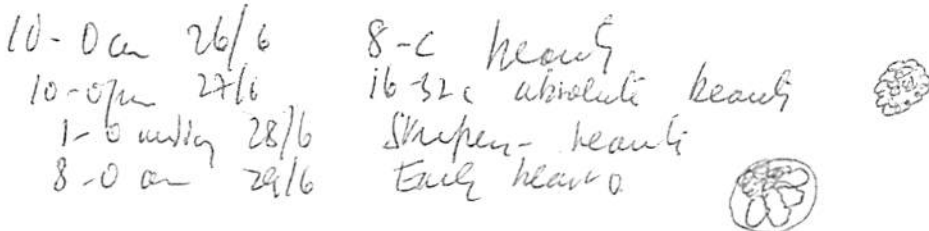 10-0 am 26/6 8-c beauty
10-0 pm 27/6 16-32c absolute beauty
1-0 midday 28/6 beauty
8-0 am 29/6 Early